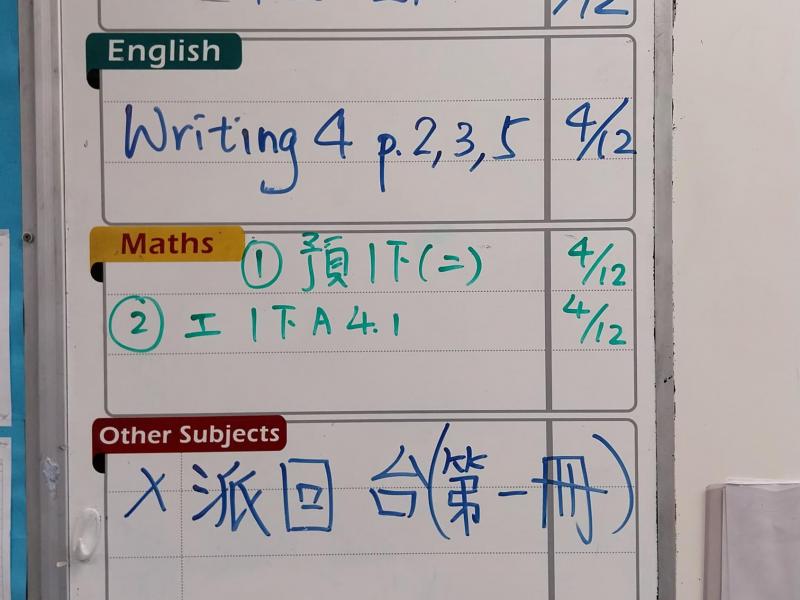 /12
English
Writing 4 p.2,3,5 4/12
Maths
① 預1下(二) 4/12
② 工 1下A4.1 4/12
Other Subjects
X 派回 台(第一冊)